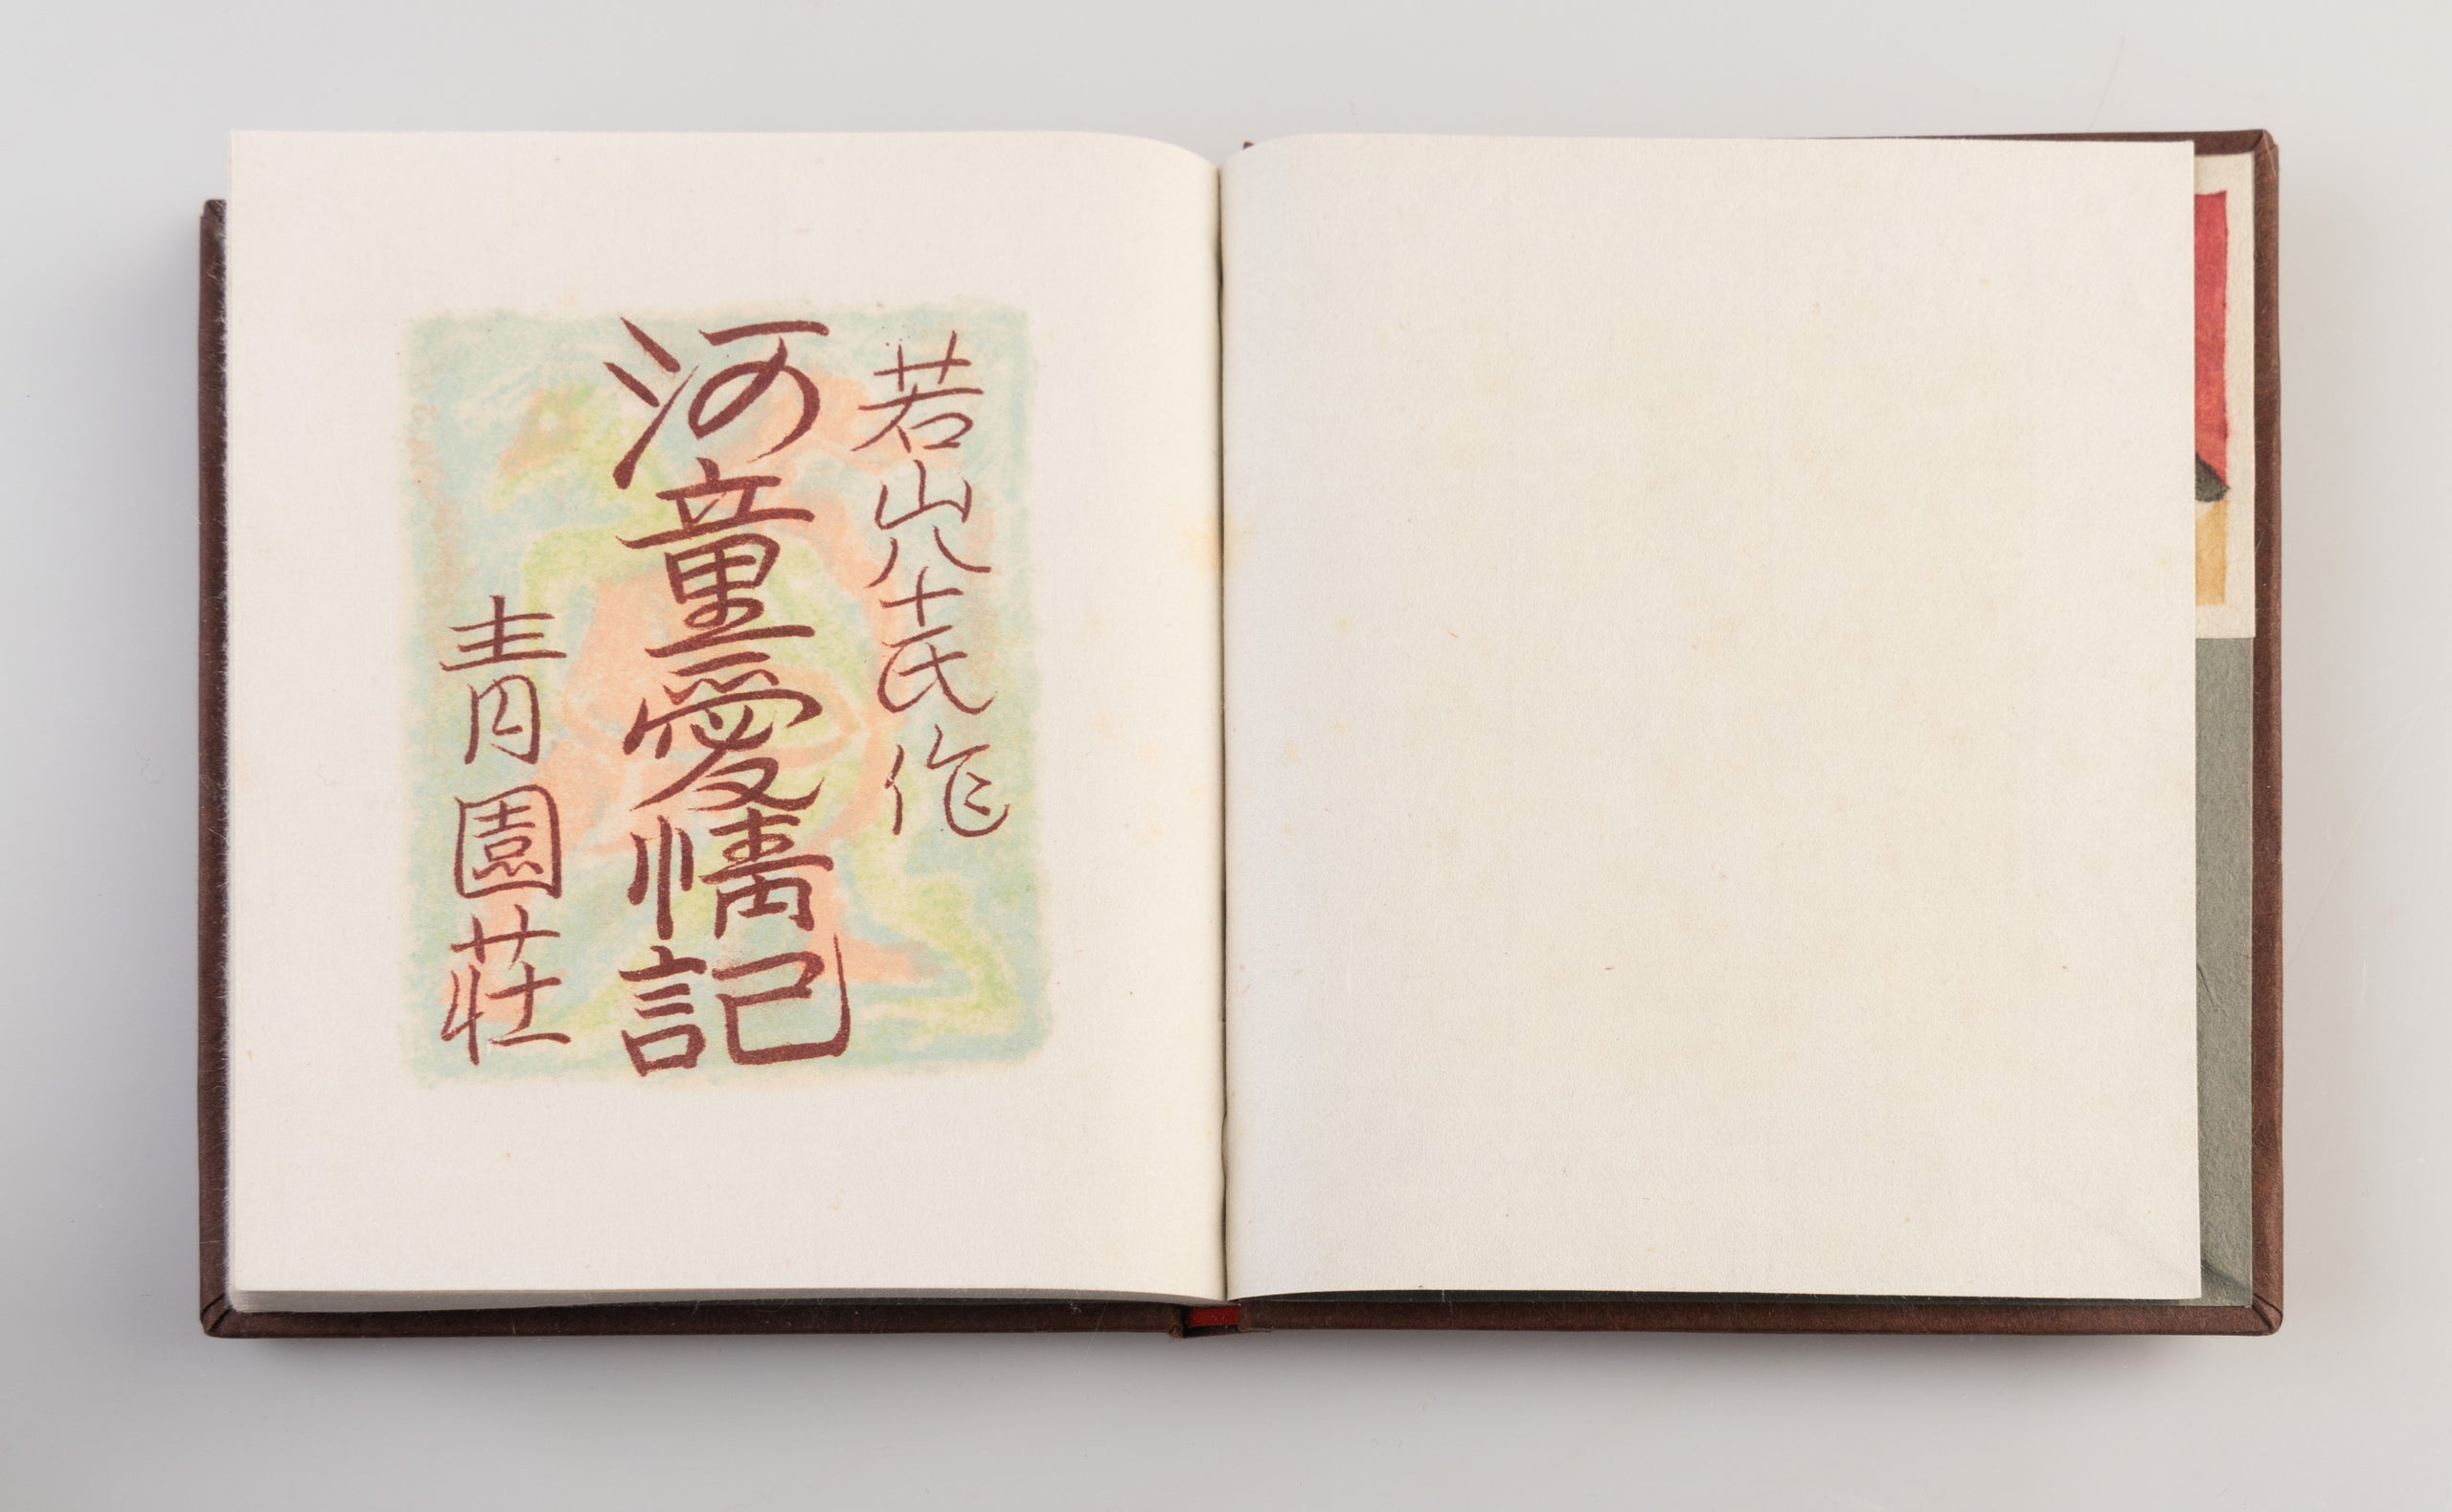 若山八十氏作
河童愛情記
青園荘